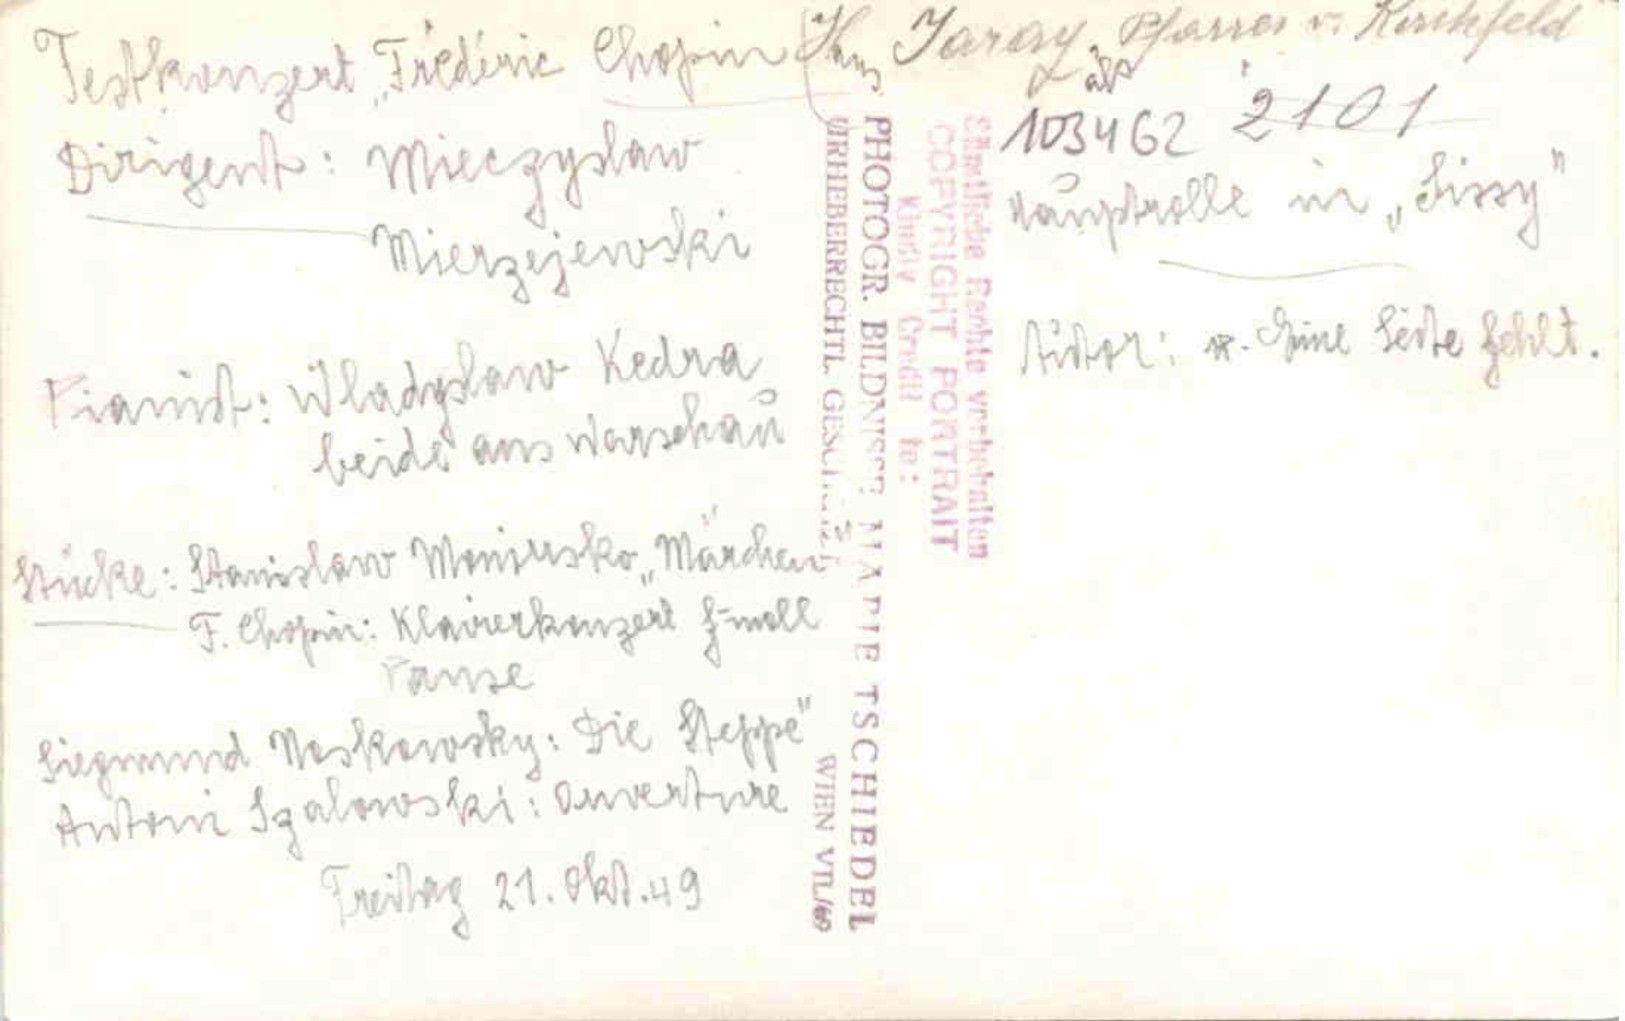 Festkonzert „Frédéric Chopin
Dirigent: Mieczyslaw
Mierzejewski
Pianist: Wladyslaw Kedra
beide aus Warschau
Stücke: Stanislaw Moniusko „Märchen"
F. Chopin: Klavierkonzert f-moll
Pause
Siegmund Noskowsky: Die Steppe"
Antoni Szalowski: Ouverture
Freitag 21. Okt. 49
Hans Jaray Pfarrer v. Kirchfeld
als
103462 2101
Hauptrolle in „Sissy"
Autor: Eine Seite fehlt.
Sämtliche Rechte vorbehalten
COPYRIGHT PORTRAIT
Kindly Credit to:
PHOTOGR. BILDNISSE MARIE TSCHIEDEL
URHEBERRECHTL. GESCHÜTZT WIEN VII./69